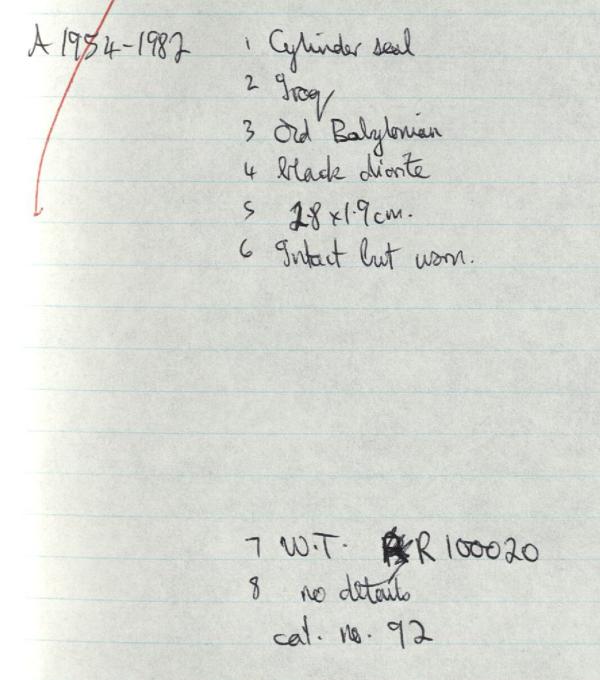 A 1954-1982 1 Cylinder seal
2 Iraq
3 Old Babylonian
4 black diorite
5 2.8 x 1.9 cm.
6 Intact but worn.
7 W.T. R 100020
8 no details
cat. no. 92